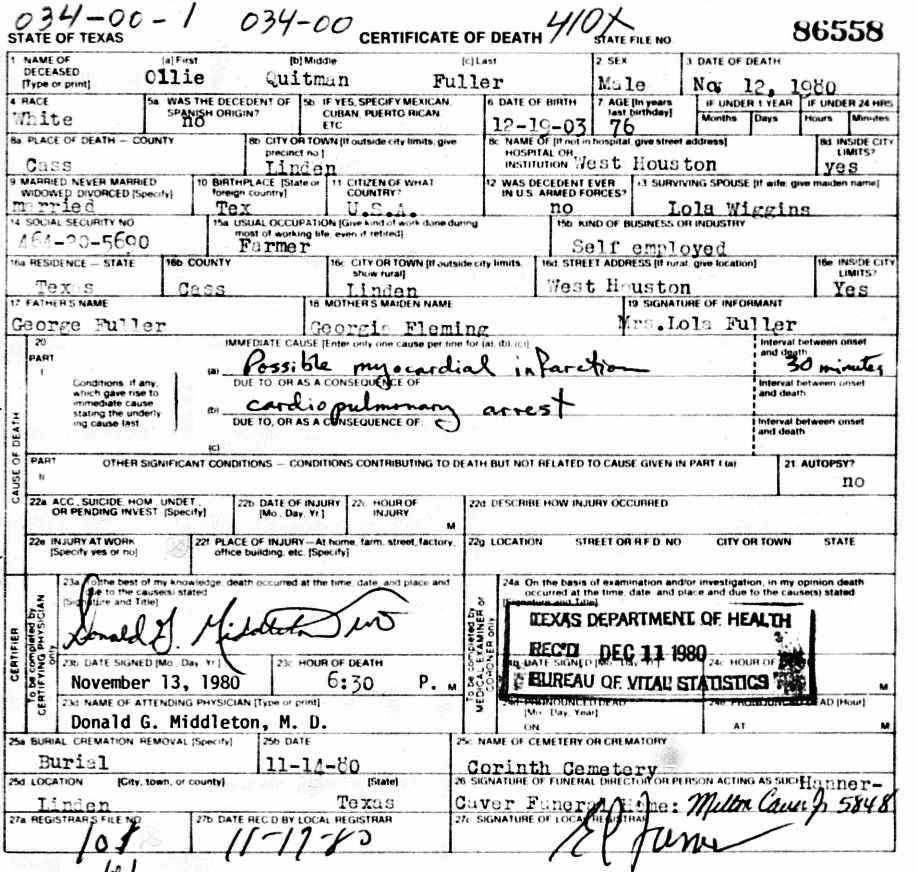 034-00-1 034-00 410X 86558
STATE OF TEXAS CERTIFICATE OF DEATH STATE FILE NO.
1 NAME OF DECEASED [Type or print] [a] First [b] Middle [c] Last 2 SEX 3 DATE OF DEATH
Ollie Quitman Fuller Male Nov 12, 1980
4 RACE 5a WAS THE DECEDENT OF SPANISH ORIGIN? 5b IF YES, SPECIFY MEXICAN, CUBAN, PUERTO RICAN ETC 6 DATE OF BIRTH 7 AGE [In years last birthday] IF UNDER 1 YEAR IF UNDER 24 HRS
Months Days Hours Minutes
White no 12-19-03 76
8a PLACE OF DEATH — COUNTY 8b CITY OR TOWN [If outside city limits, give precinct no] 8c NAME OF [If not in hospital, give street address] HOSPITAL OR INSTITUTION 8d INSIDE CITY LIMITS?
Cass Linden West Houston yes
9 MARRIED NEVER MARRIED WIDOWED DIVORCED [Specify] 10 BIRTHPLACE [State or foreign country] 11 CITIZEN OF WHAT COUNTRY 12 WAS DECEDENT EVER IN U.S. ARMED FORCES? 13 SURVIVING SPOUSE [If wife, give maiden name]
married Tex U.S.A. no Lola Wiggins
14 SOCIAL SECURITY NO 15a USUAL OCCUPATION [Give kind of work done during most of working life, even if retired] 15b KIND OF BUSINESS OR INDUSTRY
464-20-5690 Farmer Self employed
16a RESIDENCE — STATE 16b COUNTY 16c CITY OR TOWN [If outside city limits, show rural] 16d STREET ADDRESS [If rural, give location] 16e INSIDE CITY LIMITS?
Texas Cass Linden West Houston Yes
17 FATHER'S NAME 18 MOTHER'S MAIDEN NAME 19 SIGNATURE OF INFORMANT
George Fuller Georgia Fleming Mrs.Lola Fuller
20 IMMEDIATE CAUSE [Enter only one cause per line for (a), (b), (c)] Interval between onset and death
PART I (a) Possible myocardial infarction 30 minutes
Conditions, if any, which gave rise to immediate cause stating the underlying cause last
DUE TO, OR AS A CONSEQUENCE OF Interval between onset and death
(b) cardiopulmonary arrest
DUE TO, OR AS A CONSEQUENCE OF: Interval between onset and death
(c)
CAUSE OF DEATH
PART II OTHER SIGNIFICANT CONDITIONS — CONDITIONS CONTRIBUTING TO DEATH BUT NOT RELATED TO CAUSE GIVEN IN PART I (a) 21 AUTOPSY?
no
22a ACC., SUICIDE HOM. UNDET., OR PENDING INVEST [Specify] 22b DATE OF INJURY [Mo. Day, Yr] 22c HOUR OF INJURY M 22d DESCRIBE HOW INJURY OCCURRED
22e INJURY AT WORK [Specify yes or no] 22f PLACE OF INJURY—At home, farm, street, factory, office building, etc. [Specify] 22g LOCATION STREET OR R F D NO CITY OR TOWN STATE
CERTIFIER
To be completed by CERTIFYING PHYSICIAN only
23a To the best of my knowledge, death occurred at the time, date, and place and due to the cause(s) stated
[Signature and Title]
Donald G. Middleton
To be completed by MEDICAL EXAMINER or CORONER only
24a On the basis of examination and/or investigation, in my opinion death occurred at the time, date, and place and due to the cause(s) stated
[Signature and Title]
TEXAS DEPARTMENT OF HEALTH
REC'D DEC 11 1980
BUREAU OF VITAL STATISTICS
23b DATE SIGNED [Mo., Day, Yr] 23c HOUR OF DEATH DATE SIGNED [Mo., Day, Yr] 24c HOUR OF
November 13, 1980 6:30 P. M M
23d NAME OF ATTENDING PHYSICIAN [Type or print] PRONOUNCED DEAD [Mo., Day, Year] PRONOUNCED DEAD [Hour]
Donald G. Middleton, M. D. ON AT M
25a BURIAL CREMATION REMOVAL [Specify] 25b DATE 25c NAME OF CEMETERY OR CREMATORY
Burial 11-14-80 Corinth Cemetery
25d LOCATION [City, town, or county] [State] 26 SIGNATURE OF FUNERAL DIRECTOR OR PERSON ACTING AS SUCH Hanner-
Linden Texas Caver Funeral Home: Milton Caver Jr 5848
27a REGISTRAR'S FILE NO 27b DATE REC'D BY LOCAL REGISTRAR 27c SIGNATURE OF LOCAL REGISTRAR
11-17-80